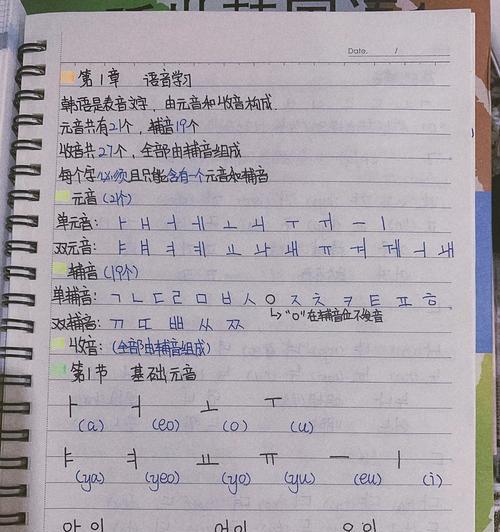 Date.    /
第1章  语音学习
韩语是表音文字,由元音和收音构成.
元音共有21个,辅音19个
收音共27个,全部由辅音组成
每个字必须且只能含有一个元音和辅音
元音(21个)
单元音: ㅏ ㅐ ㅓ ㅔ ㅗ ㅚ ㅜ ㅟ ㅡ ㅣ
双元音: ㅑ ㅒ ㅕ ㅖ ㅛ ㅘ ㅙ ㅠ ㅝ ㅞ
辅音(19个)
单辅音: ㄱ ㄴ ㄷ ㄹ ㅁ ㅂ ㅅ ㅇ ㅈ ㅊ ㅋ ㅌ ㅍ ㅎ
↳"ㅇ"在辅音位不发音
双辅音: ㄲ ㄸ ㅃ ㅆ ㅉ
收音: (全部由辅音组成)
第1节  基础元音
ㅏ ㅓ ㅗ ㅜ
(a) (eo) (o) (u)
ㅑ ㅕ ㅛ ㅠ ㅡ ㅣ
(ya) (yeo) (yo) (yu) (eu) (i)